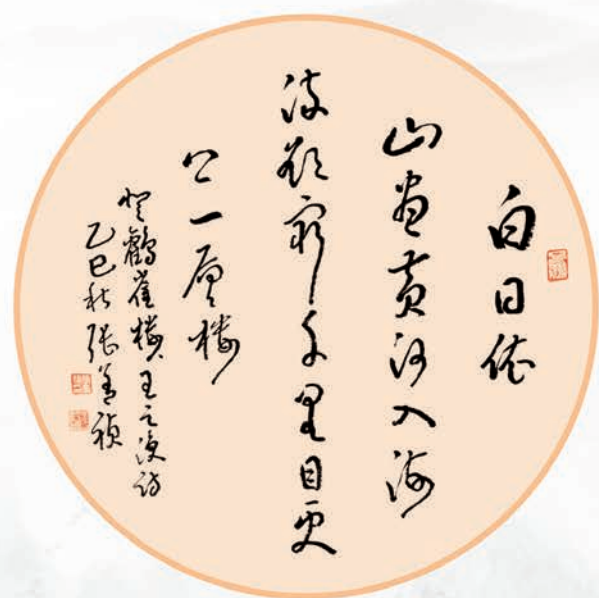 白日依
山盡黃河入海
流欲窮千里目更
上一層樓
登鸛雀樓 王之渙詩
乙巳秋 張善禎